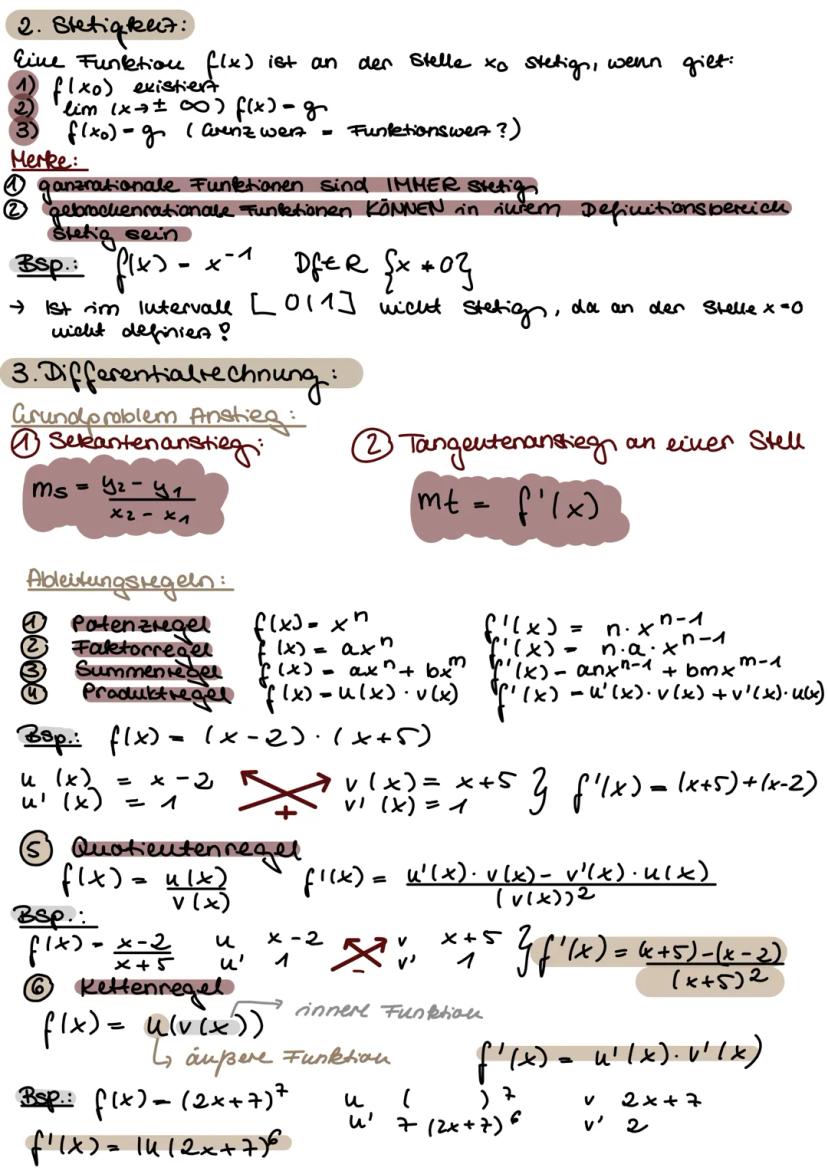 2. Stetigkeit:
Eine Funktion f(x) ist an der Stelle x₀ stetig, wenn gilt:
1) f(x₀) existiert
2) lim (x→± ∞) f(x) = g
3) f(x₀) = g (Grenzwert = Funktionswert?)
Merke:
① ganzrationale Funktionen sind IMMER stetig
② gebrochenrationale Funktionen KÖNNEN in ihrem Definitionsbereich
stetig sein
Bsp.: f(x) = x⁻¹ Df∈R {x ≠ 0}
→ Ist im Intervall [0|1] nicht stetig, da an der Stelle x=0
nicht definiert!
3. Differentialrechnung:
Grundproblem Anstieg:
① Sekantenanstieg: ② Tangentenanstieg an einer Stell
ms = (y₂ - y₁)/(x₂ - x₁) mt = f'(x)
Ableitungsregeln:
① Potenzregel f(x) = xⁿ f'(x) = n·xⁿ⁻¹
② Faktorregel f(x) = axⁿ f'(x) = n·a·xⁿ⁻¹
③ Summenregel f(x) = axⁿ + bxᵐ f'(x) = anxⁿ⁻¹ + bmxᵐ⁻¹
④ Produktregel f(x) = u(x)·v(x) f'(x) = u'(x)·v(x) + v'(x)·u(x)
Bsp.: f(x) = (x-2)·(x+5)
u (x) = x-2 v(x) = x+5 } f'(x) = (x+5)+(x-2)
u' (x) = 1 + v' (x) = 1
⑤ Quotientenregel
f(x) = u(x)/v(x) f'(x) = (u'(x)·v(x) - v'(x)·u(x))/(v(x))²
Bsp.:
f(x) = (x-2)/(x+5) u x-2 v x+5 } f'(x) = ((x+5)-(x-2))/(x+5)²
u' 1 - v' 1
⑥ Kettenregel
f(x) = u(v(x)) → innere Funktion
↳ äußere Funktion f'(x) = u'(x)·v'(x)
Bsp.: f(x) = (2x+7)⁷ u ( )⁷ v 2x+7
u' 7(2x+7)⁶ v' 2
f'(x) = 14(2x+7)⁶